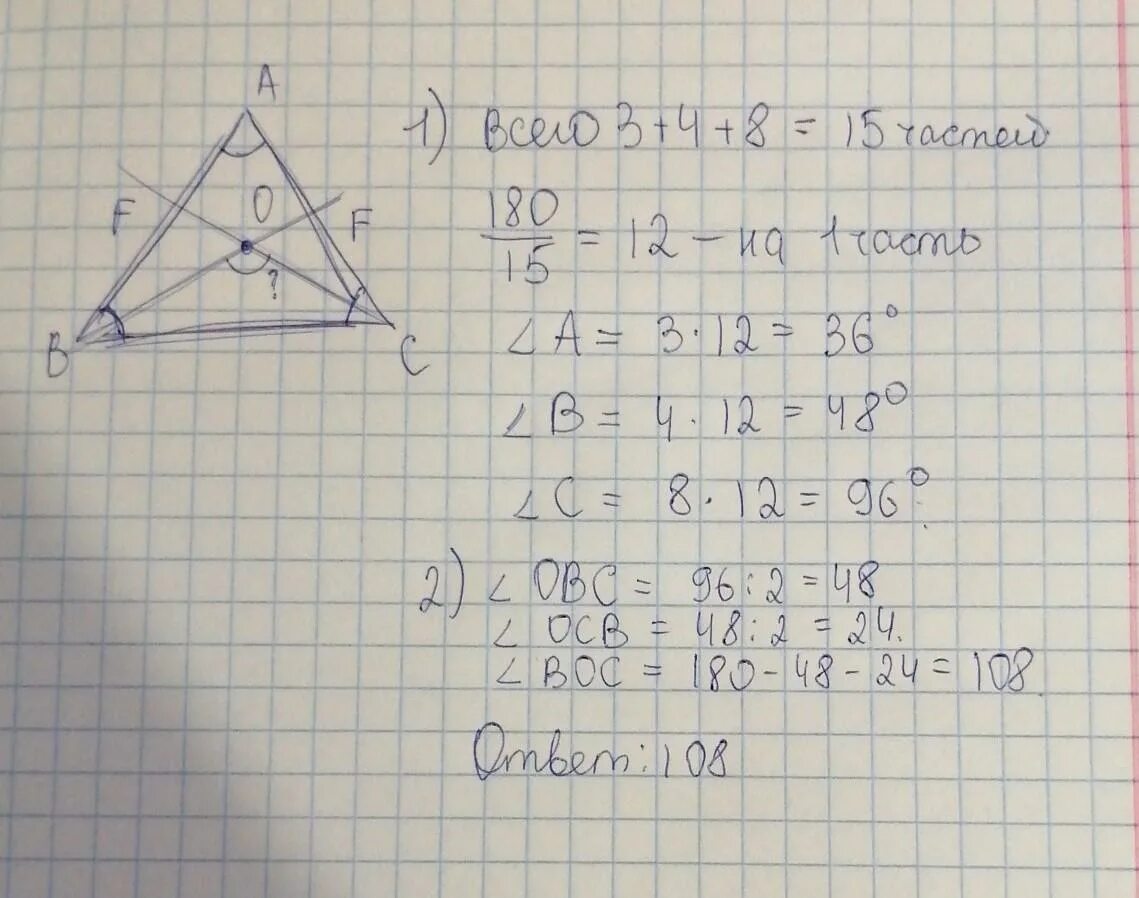 A
F
O
F
?
B
C
1) Всего 3+4+8 = 15 частей
180/15 = 12 – на 1 часть
∠A = 3·12 = 36°
∠B = 4·12 = 48°
∠C = 8·12 = 96°.
2) ∠OBC = 96:2 = 48
∠OCB = 48:2 = 24.
∠BOC = 180-48-24 = 108.
Ответ: 108